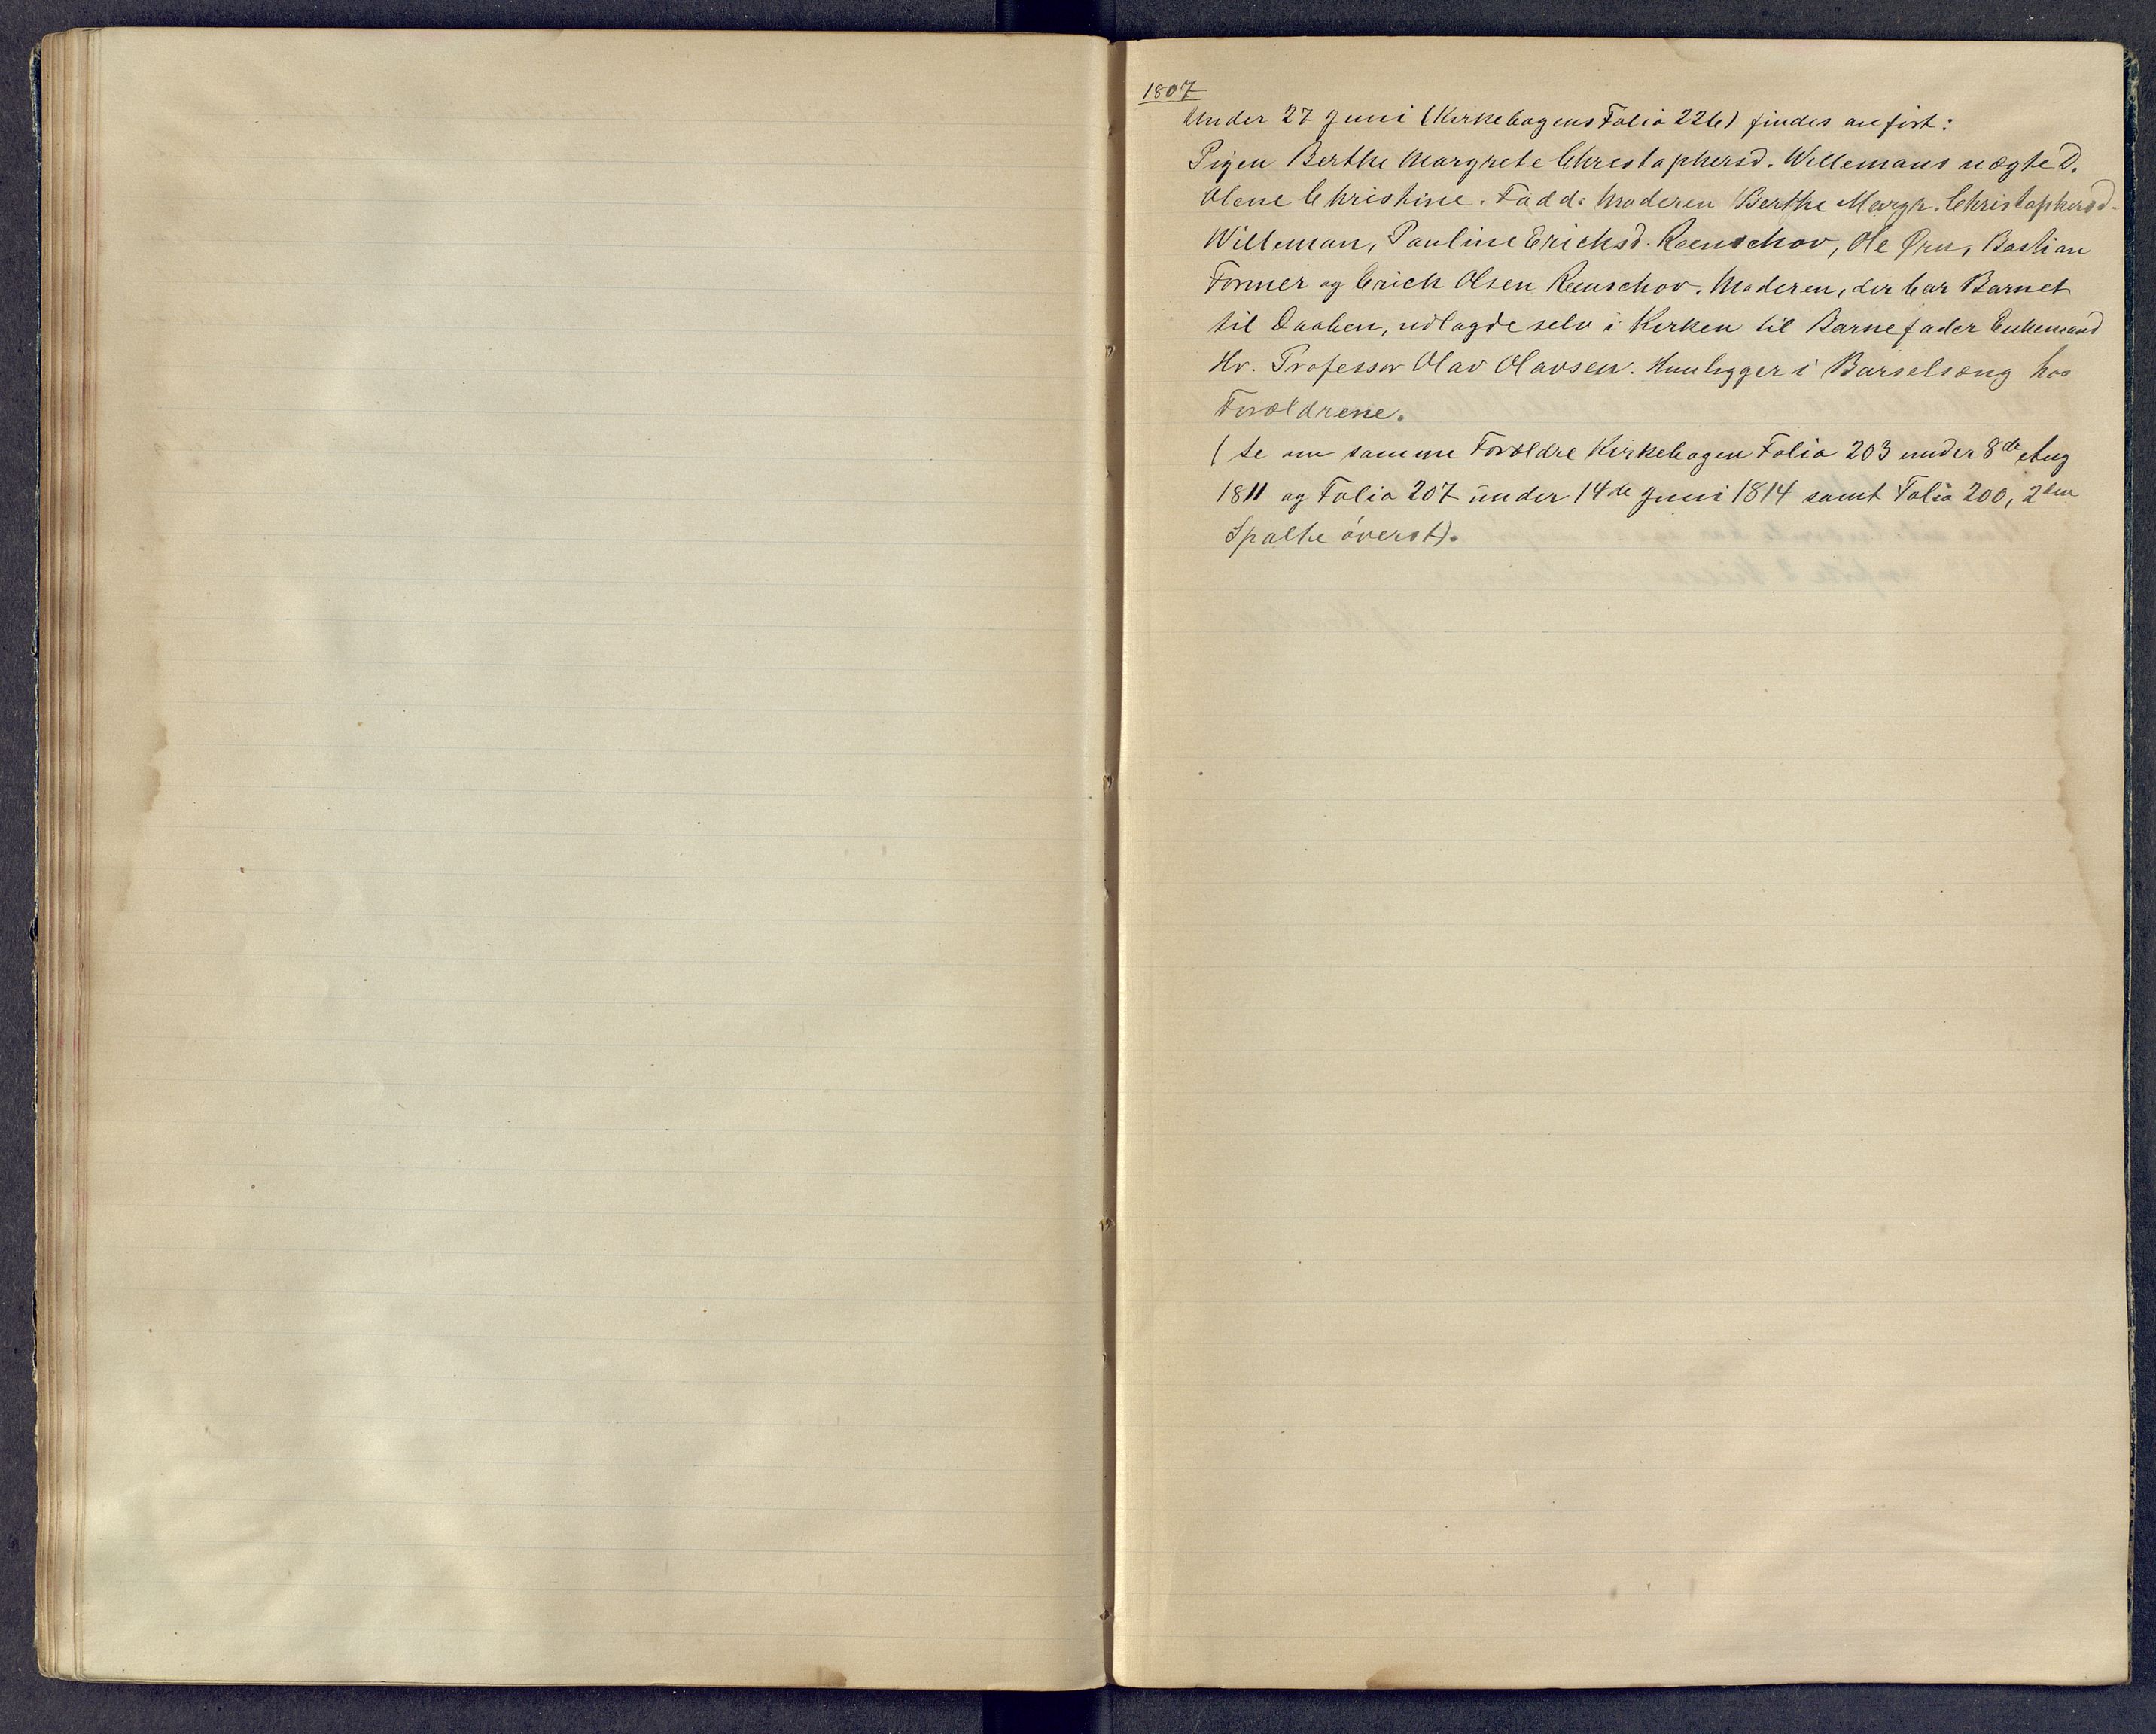 1807
Under 27 Juni (Kirkebogens Folio 226) findes anført:
Pigen Berthe Margrete Christophersd. Willemans uægte D.
Olene Christine. Fadd: Moderen Berthe Margr. Christophersd.
Willeman, Pauline Erichsd. Reenschov, Ole Ørn, Bastian
Former og Erich Olsen Reenschov. Moderen, der bar Barnet
til Daaben, udlagde selv i Kirken til Barnefader Enkemand
Hr. Professor Olav Olavsen. Hun ligger i Barselseng hos
Forældrene.
(se om samme Forældre Kirkebogen Folio 203 under 8de Aug
1811 og Folio 207 under 14de Juni 1814 samt Folio 200, 2den
Spalte øverst).